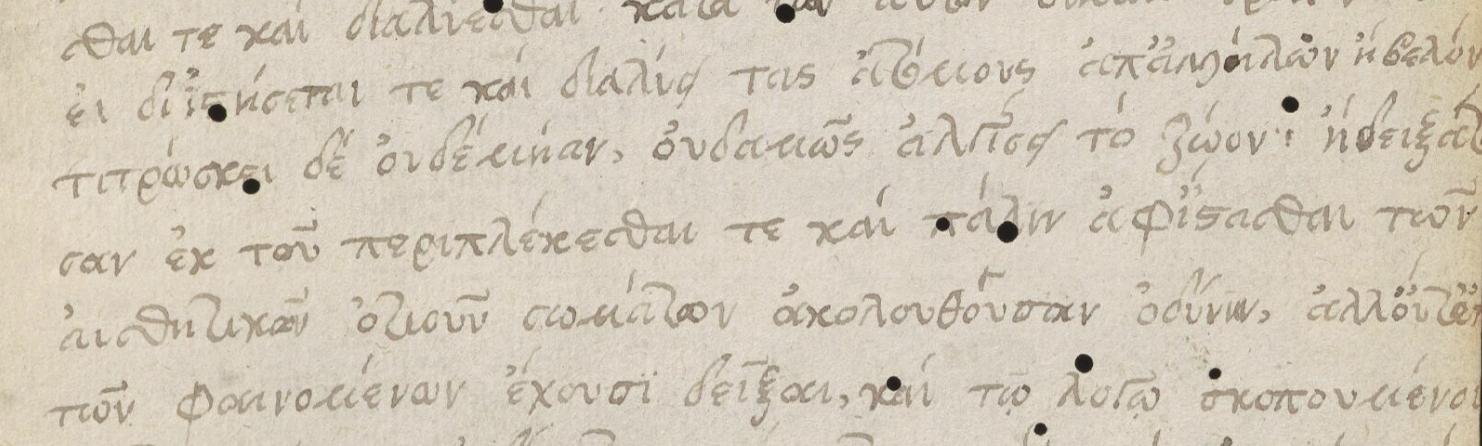 σθαι τε καὶ διαλύεσθαι κατὰ τὸν αὐτὸν
ἐι διΐστήσεται τε καὶ διαλύσ τὰς ἀτόμους ἀπ' ἀλλήλων ἡ βελόν
τιτρώσκει δὲ ὀυδέμιὰν, ὀυδαμῶς ἀλγῆσ τὸ ζῶον· ἢ δειξάτ
σαν ἐκ τοῦ περιπλέκεσθαι τε καὶ πάλιν ἀφΐστασθαι τῶν
ἀισθητικῶν ὁτιοῦν σωμάτων ἀκολουθοῦσαν ὀδύνην, ἀλλ' ὄυτ' ἐπ
τῶν φαινομένων ἔχουσϊ δεῖξαι, καὶ τῷ λόγῳ σκοπουμένοι